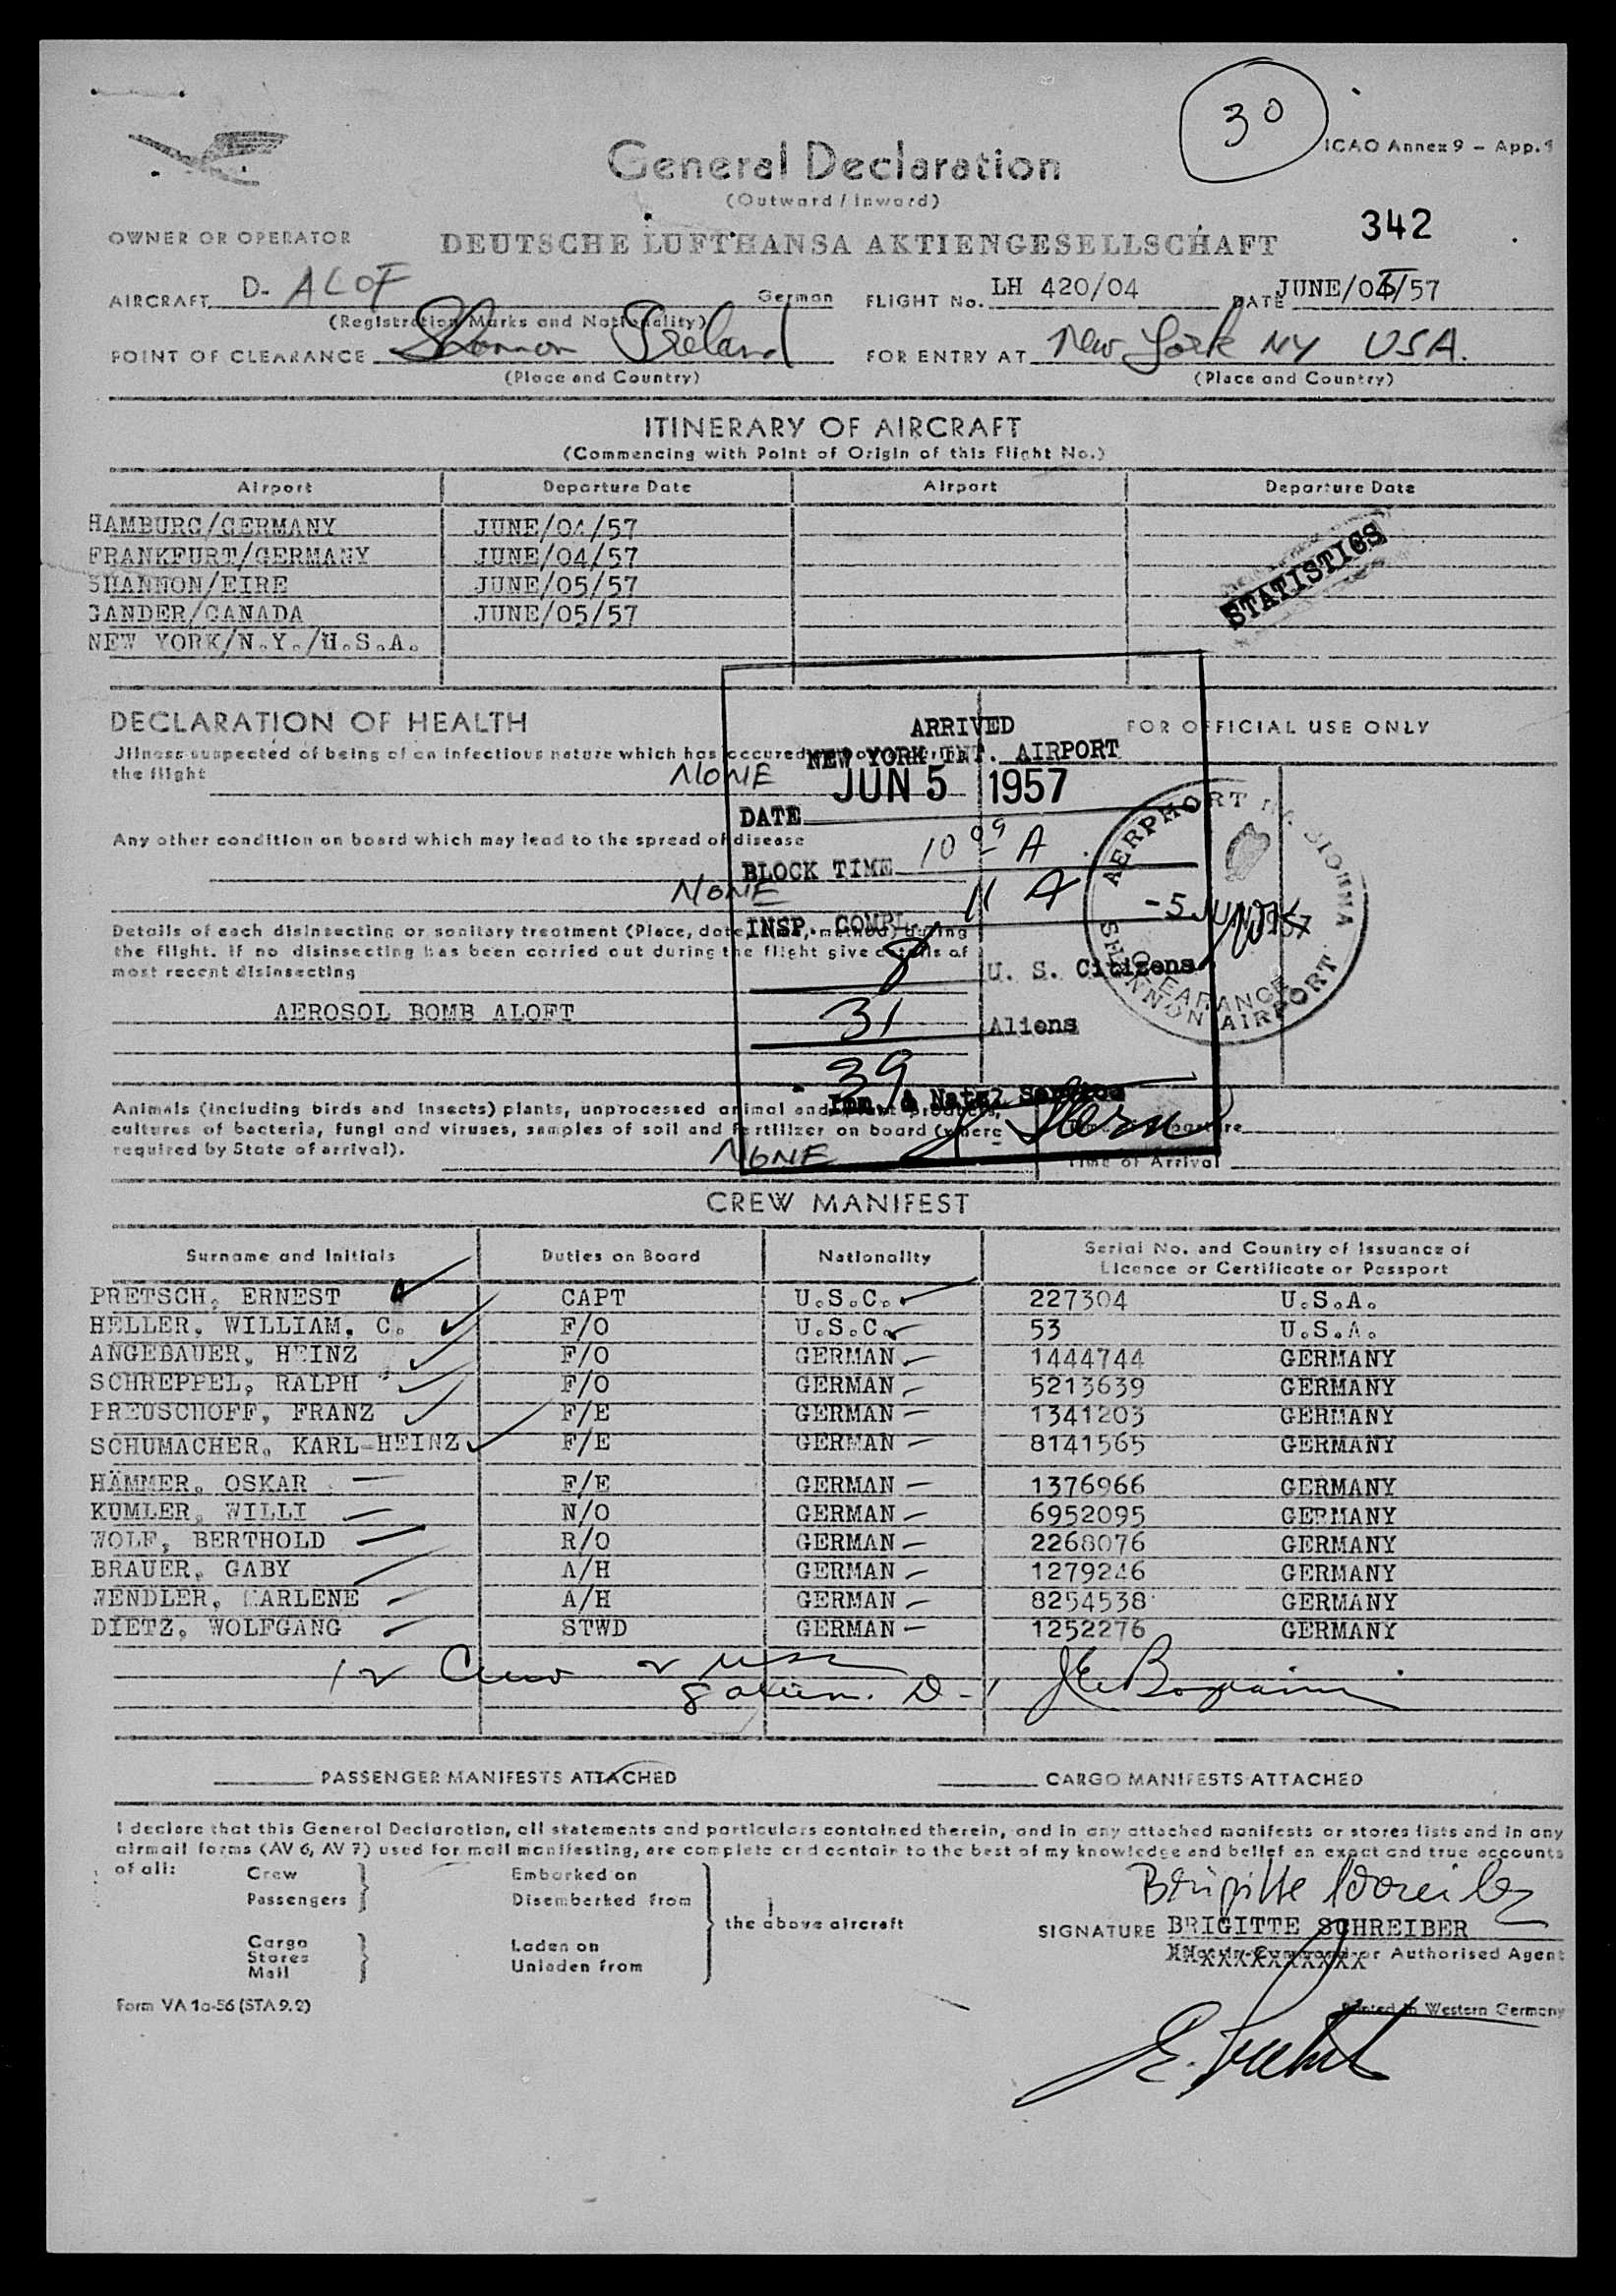 30
ICAO Annex 9 – App. 1
General Declaration
(Outward / Inward)
342
OWNER OR OPERATOR DEUTSCHE LUFTHANSA AKTIENGESELLSCHAFT
AIRCRAFT D- ALOF German FLIGHT No. LH 420/04 DATE JUNE/05/57
(Registration Marks and Nationality)
POINT OF CLEARANCE Shannon Ireland FOR ENTRY AT New York NY USA.
(Place and Country) (Place and Country)
ITINERARY OF AIRCRAFT
(Commencing with Point of Origin of this Flight No.)
Airport Departure Date Airport Departure Date
HAMBURG/GERMANY JUNE/04/57
FRANKFURT/GERMANY JUNE/04/57
SHANNON/EIRE JUNE/05/57
GANDER/CANADA JUNE/05/57
NEW YORK/N.Y./U.S.A.
STATISTICS
DECLARATION OF HEALTH
FOR OFFICIAL USE ONLY
Illness suspected of being of an infectious nature which has occured
the flight NONE
Any other condition on board which may lead to the spread of disease
NONE
Details of each disinsecting or sanitary treatment (Place, date, time, method) during
the flight. If no disinsecting has been carried out during the flight give details of
most recent disinsecting
AEROSOL BOMB ALOFT
ARRIVED
NEW YORK INT. AIRPORT
JUN 5 1957
DATE
BLOCK TIME 10 09 A
INSP. COMPL. 11 A
8 U. S. Citizens
31 Aliens
39
Imm. & Natz. Service
AERPHORT NA SIONNA
-5 JUN 1957
CLEARANCE
SHANNON AIRPORT
Animals (including birds and insects) plants, unprocessed animal and plant products,
cultures of bacteria, fungi and viruses, samples of soil and fertilizer on board (where
required by State of arrival). NONE
Time of Arrival
CREW MANIFEST
Surname and Initials Duties on Board Nationality Serial No. and Country of Issuance of
Licence or Certificate or Passport
PRETSCH, ERNEST CAPT U.S.C. 227304 U.S.A.
HELLER, WILLIAM, C. F/O U.S.C. 53 U.S.A.
ANGEBAUER, HEINZ F/O GERMAN 1444744 GERMANY
SCHREPPEL, RALPH F/O GERMAN 5213639 GERMANY
PREUSCHOFF, FRANZ F/E GERMAN 1341203 GERMANY
SCHUMACHER, KARL-HEINZ F/E GERMAN 8141565 GERMANY
HÄMMER, OSKAR F/E GERMAN 1376966 GERMANY
KUMLER, WILLI N/O GERMAN 6952095 GERMANY
WOLF, BERTHOLD R/O GERMAN 2268076 GERMANY
BRAUER, GABY A/H GERMAN 1279246 GERMANY
WENDLER, MARLENE A/H GERMAN 8254538 GERMANY
DIETZ, WOLFGANG STWD GERMAN 1252276 GERMANY
12 Crew 2 USC
PASSENGER MANIFESTS ATTACHED CARGO MANIFESTS ATTACHED
I declare that this General Declaration, all statements and particulars contained therein, and in any attached manifests or stores lists and in any
airmail forms (AV 6, AV 7) used for mail manifesting, are complete and contain to the best of my knowledge and belief an exact and true accounts
of all: Crew Embarked on
Passengers Disembarked from
the above aircraft
Cargo Laden on
Stores Unladen from
Mail
Brigitte Schreiber
SIGNATURE BRIGITTE SCHREIBER
or Authorised Agent
Form VA 1a-56 (STA 9.2)
Printed in Western Germany